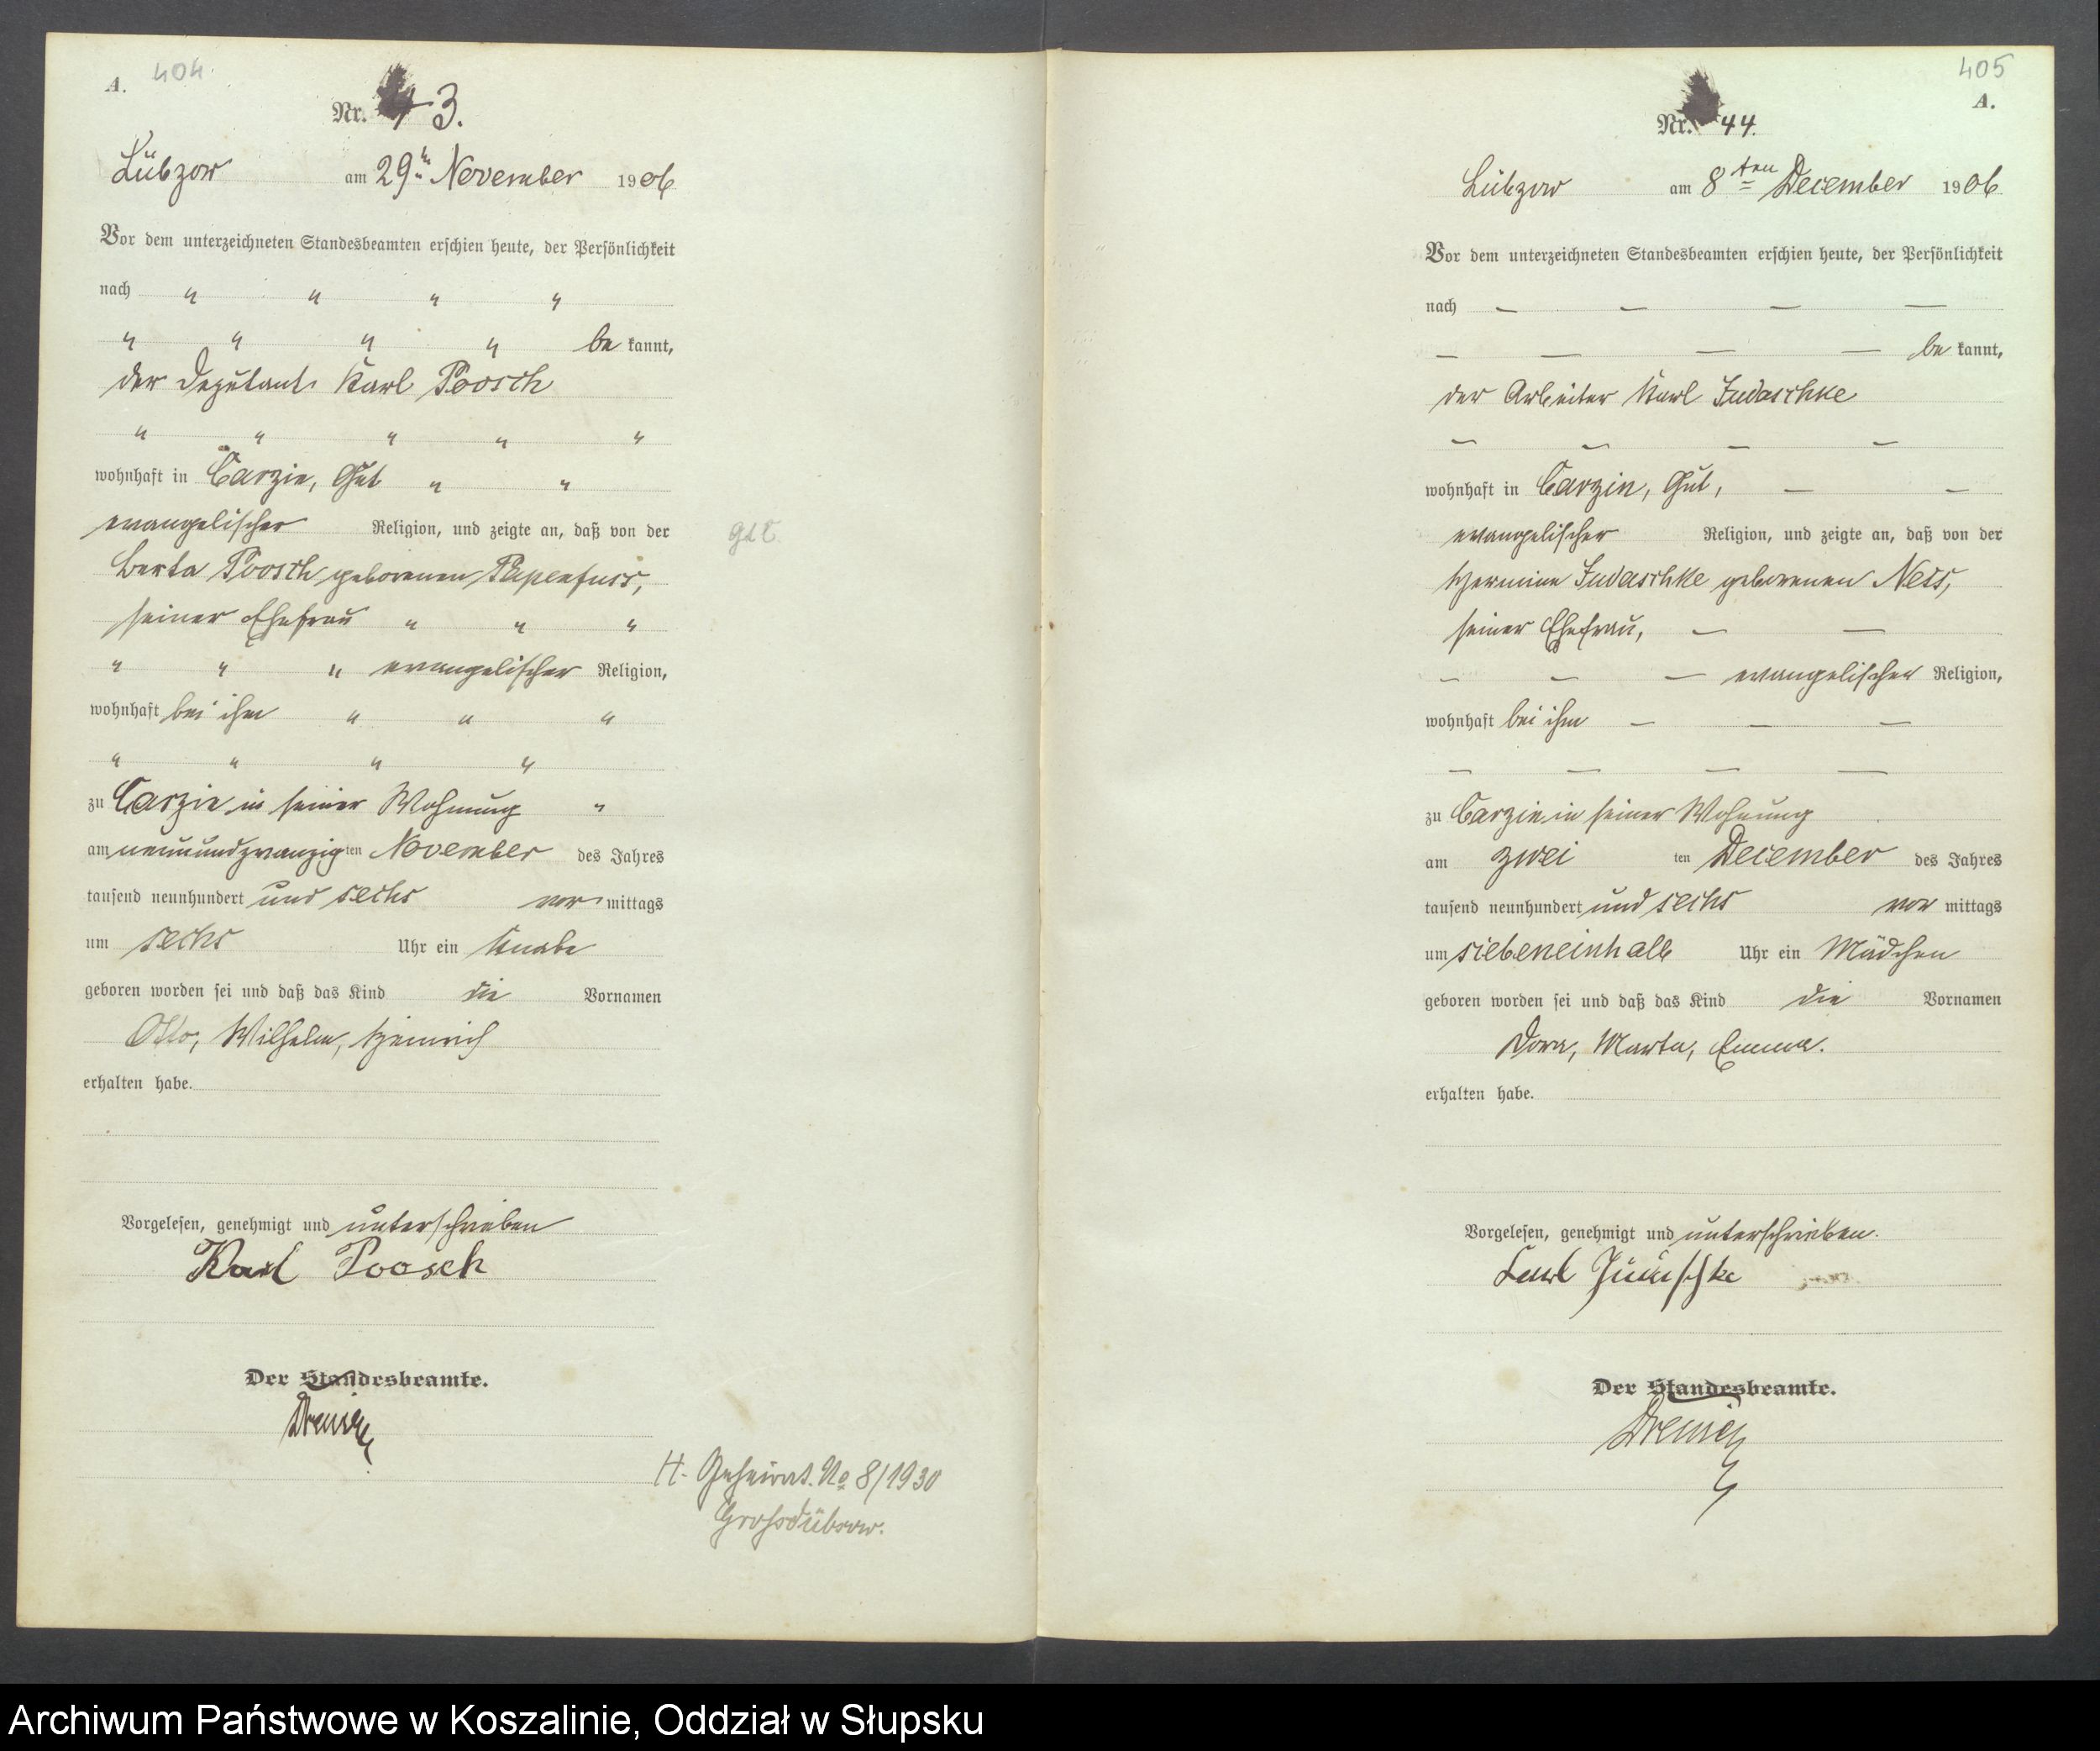 A. 404.
Nr. 43.
Lübzow am 29ten November 1906
Vor dem unterzeichneten Standesbeamten erschien heute, der Persönlichkeit
nach " " " "
" " " " be kannt,
der Deputant Karl Poosch
" " " " "
wohnhaft in Carzin, Gut " "
evangelischer Religion, und zeigte an, daß von der
Berta Poosch geborenen Papenfuss,
seiner Ehefrau " " "
" " " evangelischer Religion,
wohnhaft bei ihm " " "
" " " "
zu Carzin in seiner Wohnung "
am neunundzwanzig ten November des Jahres
tausend neunhundert und sechs vor mittags
um sechs Uhr ein Knabe
geboren worden sei und daß das Kind die Vornamen
Otto, Wilhelm, Heinrich
erhalten habe.
Vorgelesen, genehmigt und unterschrieben
Karl Poosch
Der Standesbeamte.
H. Geheirat. No 8/1930
Grossdübsow.
405
A.
Nr. 44.
Lübzow am 8ten December 1906
Vor dem unterzeichneten Standesbeamten erschien heute, der Persönlichkeit
nach — — — —
— — — — be kannt,
der Arbeiter Karl Judaschke
— — — —
wohnhaft in Carzin, Gut, — —
evangelischer Religion, und zeigte an, daß von der
Hermine Judaschke geborenen Ness,
seiner Ehefrau, — —
— — — evangelischer Religion,
wohnhaft bei ihm — — —
— — — —
zu Carzin in seiner Wohnung
am zwei ten December des Jahres
tausend neunhundert und sechs vor mittags
um siebeneinhalb Uhr ein Mädchen
geboren worden sei und daß das Kind die Vornamen
Dora, Marta, Emma.
erhalten habe.
Vorgelesen, genehmigt und unterschrieben.
Der Standesbeamte.
Archiwum Państwowe w Koszalinie, Oddział w Słupsku